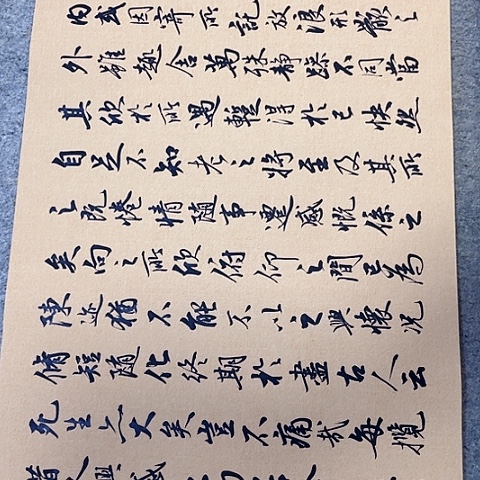 内或因寄所託放浪形骸之
外雖趣舍萬殊静躁不同當
其欣於所遇暫得於己快然
自足不知老之將至及其所
之既惓情随事遷感慨係之
矣向之所欣俯仰之間已為
陳迹猶不能不以之興懷況
脩短随化終期於盡古人云
死生亦大矣豈不痛哉每攬
昔人興感